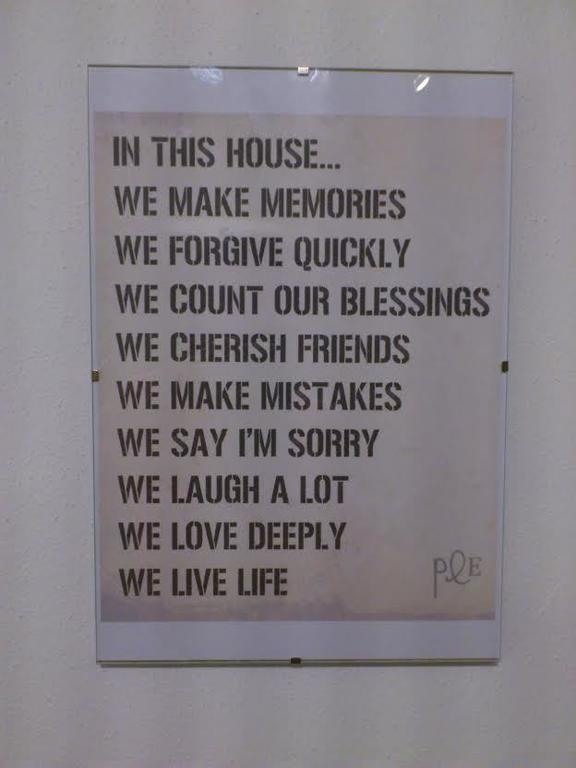 IN THIS HOUSE...
WE MAKE MEMORIES
WE FORGIVE QUICKLY
WE COUNT OUR BLESSINGS
WE CHERISH FRIENDS
WE MAKE MISTAKES
WE SAY I'M SORRY
WE LAUGH A LOT
WE LOVE DEEPLY
WE LIVE LIFE
PlE